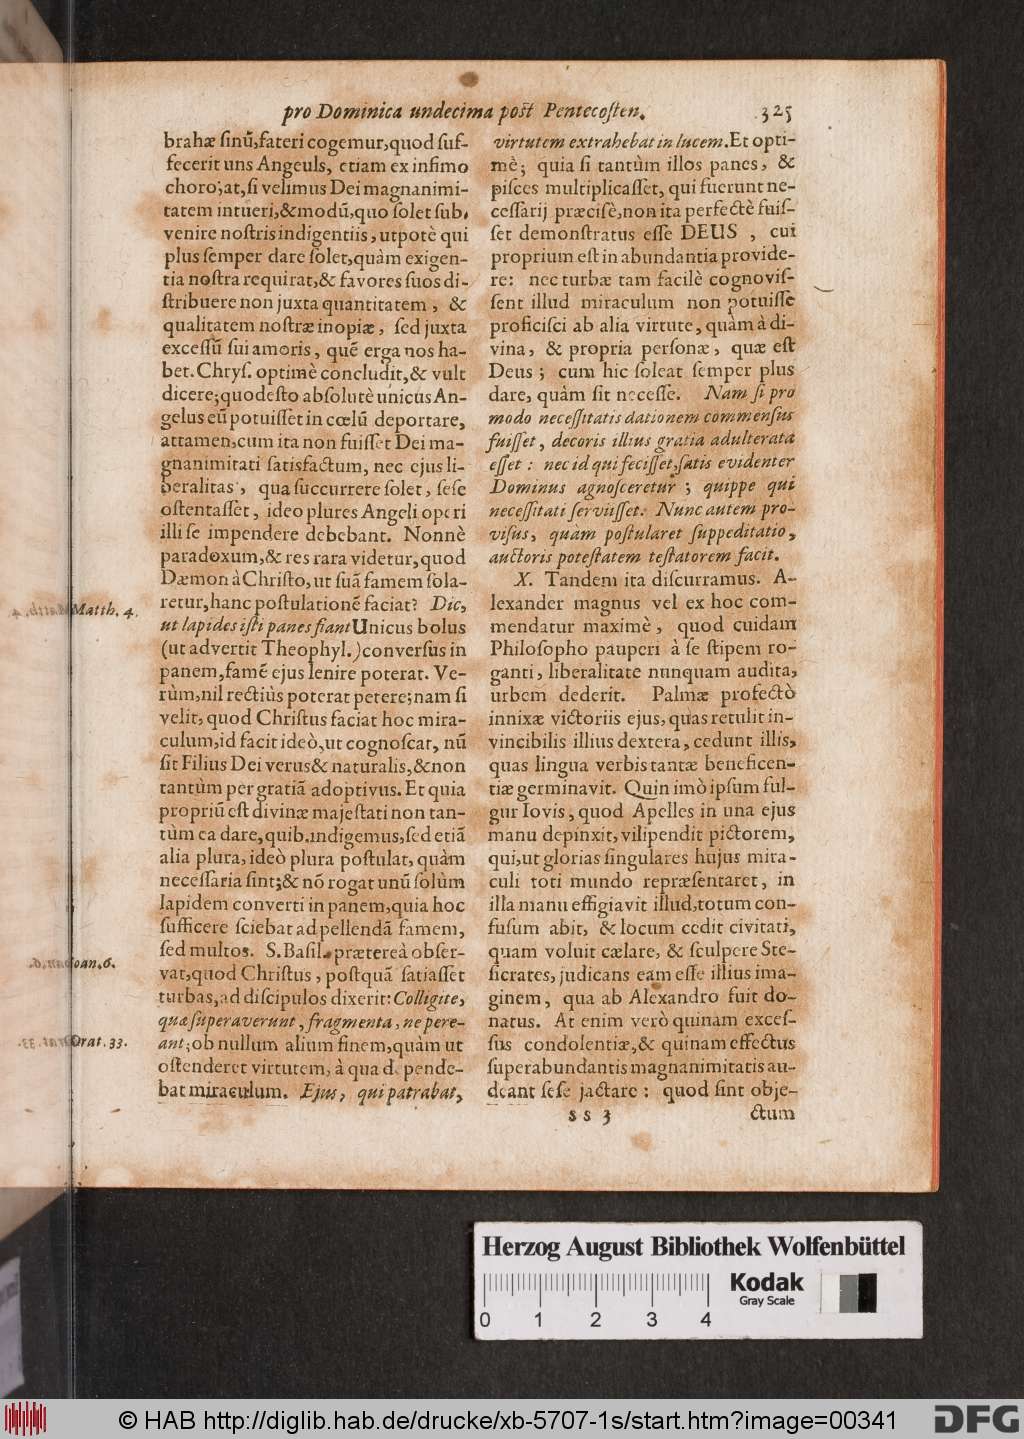 pro Dominica undecima post Pentecosten. 325
brahæ sinũ, fateri cogemur, quod suf-
fecerit uns Angeuls, etiam ex infimo
choro; at, si velimus Dei magnanimi-
tatem intueri, & modũ, quo solet sub-
venire nostris indigentiis, utpotè qui
plus semper dare solet, quàm exigen-
tia nostra requirat, & favores suos di-
stribuere non juxta quantitatem, &
qualitatem nostræ inopiæ, sed juxta
excessũ sui amoris, quẽ erga nos ha-
bet. Chrys. optimè concludit, & vult
dicere; quod esto absolutè unicus An-
gelus eũ potuisset in cœlũ deportare,
attamen, cum ita non fuisset Dei ma-
gnanimitati satisfactum, nec ejus li-
beralitas, qua succurrere solet, sese
ostentasset, ideo plures Angeli operi
illi se impendere debebant. Nonnè
paradoxum, & res rara videtur, quod
Dæmon à Christo, ut suã famem sola-
retur, hanc postulationẽ faciat? Dic,
Matth. 4.
ut lapides isti panes fiant Unicus bolus
(ut advertit Theophyl.) conversus in
panem, famẽ ejus lenire poterat. Ve-
rùm, nil rectiùs poterat petere; nam si
velit, quod Christus faciat hoc mira-
culum, id facit ideò, ut cognoscat, nũ
sit Filius Dei verus & naturalis, & non
tantùm per gratiã adoptivus. Et quia
propriũ est divinæ majestati non tan-
tùm ea dare, quib. indigemus, sed etiã
alia plura, ideò plura postulat, quàm
necessaria sint; & nõ rogat unũ solùm
lapidem converti in panem, quia hoc
sufficere sciebat ad pellendã famem,
sed multos. S. Basil. prætereà obser-
Joan. 6.
vat, quod Christus, postquã satiasset
turbas, ad discipulos dixerit: Colligite,
quæ superaverunt, fragmenta, ne pere-
Orat. 33.
ant; ob nullum alium finem, quàm ut
ostenderet virtutem, à qua depende-
bat miraculum. Ejus, qui patrabat,
virtutem extrahebat in lucem. Et opti-
mè; quia si tantùm illos panes, &
pisces multiplicasset, qui fuerunt ne-
cessarij præcisè, non ita perfectè fuis-
set demonstratus esse DEUS, cui
proprium est in abundantia provide-
re: nec turbæ tam facilè cognovis-
sent illud miraculum non potuisse
proficisci ab alia virtute, quàm à di-
vina, & propria personæ, quæ est
Deus; cum hic soleat semper plus
dare, quàm sit necesse. Nam si pro
modo necessitatis dationem commensus
fuisset, decoris illius gratia adulterata
esset: nec id qui fecisset, satis evidenter
Dominus agnosceretur; quippe qui
necessitati serviisset. Nunc autem pro-
visus, quàm postularet suppeditatio,
auctoris potestatem testatorem facit.
X. Tandem ita discurramus. A-
lexander magnus vel ex hoc com-
mendatur maximè, quod cuidam
Philosopho pauperi à se stipem ro-
ganti, liberalitate nunquam audita,
urbem dederit. Palmæ profectò
innixæ victoriis ejus, quas retulit in-
vincibilis illius dextera, cedunt illis,
quas lingua verbis tantæ beneficen-
tiæ germinavit. Quin imò ipsum ful-
gur Iovis, quod Apelles in una ejus
manu depinxit, vilipendit pictorem,
qui, ut glorias singulares hujus mira-
culi toti mundo repræsentaret, in
illa manu effigiavit illud, totum con-
fusum abit, & locum cedit civitati,
quam voluit cælare, & sculpere Ste-
sicrates, judicans eam esse illius ima-
ginem, qua ab Alexandro fuit do-
natus. At enim verò quinam exces-
sus condolentiæ, & quinam effectus
superabundantis magnanimitatis au-
deant sese jactare: quod sint obje-
ss 3 ctum
Herzog August Bibliothek Wolfenbüttel
Kodak
Gray Scale
0 1 2 3 4
© HAB http://diglib.hab.de/drucke/xb-5707-1s/start.htm?image=00341
DFG